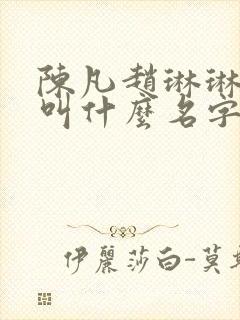 陳凡趙琳琳
叫什麼名字
伊麗莎白-莫